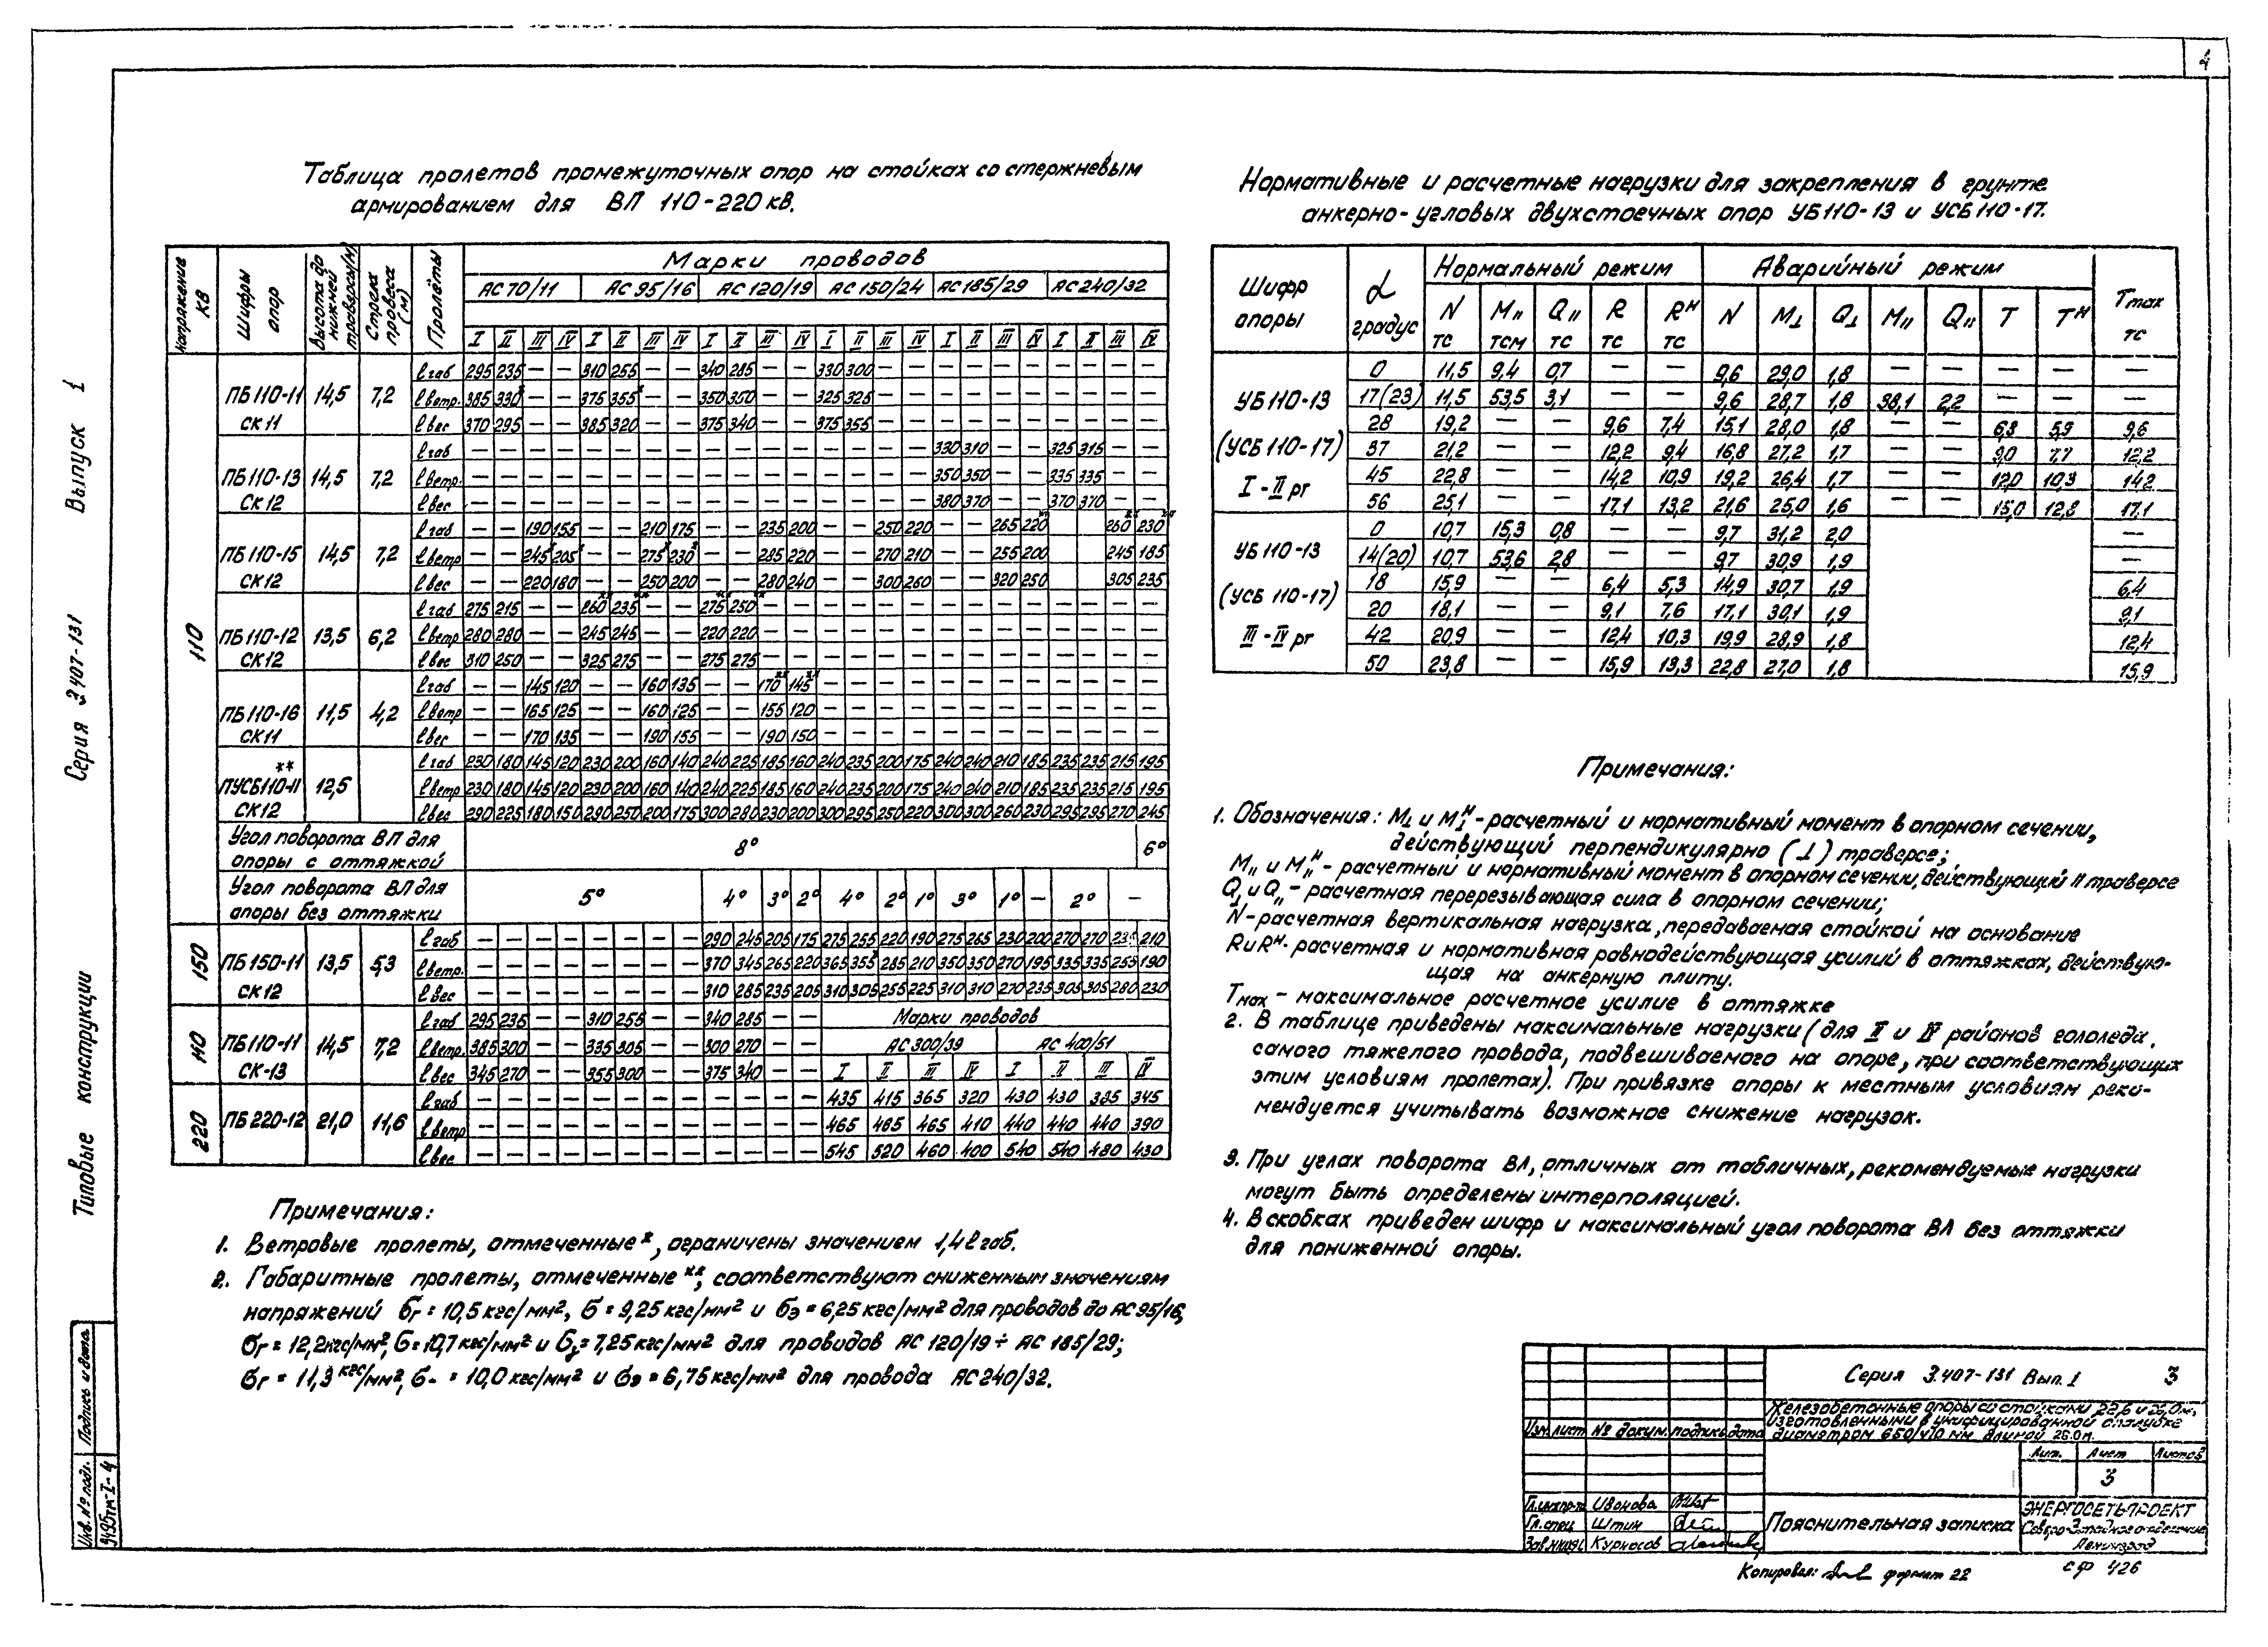 4
Типовые конструкции Серия 3.407-131 Выпуск 1
Таблица пролетов промежуточных опор на стойках со стержневым
армированием для ВЛ 110-220 кв.
Напряжение кв | Шифры опор | Высота до нижней траверсы(м) | Стрела провеса (м) | Пролёты | Марки проводов
АС 70/11 | АС 95/16 | АС 120/19 | АС 150/24 | АС 185/29 | АС 240/32
I II III IV I II III IV I II III IV I II III IV I II III IV I II III IV
110
ПБ 110-11 СК 11 14,5 7,2
ℓ габ 295 235 — — 310 255 — — 340 285 — — 330 300
ℓ ветр. 385 330* — — 375 355* — — 350 350 — — 325 325
ℓ вес 370 295 — — 385 320 — — 375 340 — — 375 355
ПБ 110-13 СК 12 14,5 7,2
ℓ габ — — — — — — — — — — — — — — — — 330 310 — — 325 315 — —
ℓ ветр. — — — — — — — — — — — — — — — — 350 350 — — 335 335 — —
ℓ вес — — — — — — — — — — — — — — — — 380 370 — — 370 370 — —
ПБ 110-15 СК12 14,5 7,2
ℓ габ — — 190 155 — — 210 175 — — 235 200 — — 250 220 — — 265 220** 260** 230**
ℓ ветр — — 245* 205* — — 275* 230* — — 285 220 — — 270 210 — — 255 200 245 185
ℓ вес — — 220 180 — — 250 200 — — 280 240 — — 300 260 — — 320 250 305 235
ПБ 110-12 СК12 13,5 6,2
ℓ габ 275 215 — — 260** 235** — — 275** 250** — — — — — — — — — — — — — —
ℓ ветр 280 280 — — 245 245 — — 220 220 — — — — — — — — — — — — — —
ℓ вес 310 250 — — 325 275 — — 275 275 — — — — — — — — — — — — — —
ПБ 110-16 СК11 11,5 4,2
ℓ габ — — 145 120 — — 160 135 — — 170** 145** — — — — — — — — — — — —
ℓ ветр — — 165 125 — — 160 125 — — 155 120 — — — — — — — — — — — —
ℓ вес — — 170 135 — — 190 155 — — 190 150 — — — — — — — — — — — —
ПУСБ110-11** СК12 12,5
ℓ габ 230 180 145 120 230 200 160 140 240 225 185 160 240 235 200 175 240 240 210 185 235 235 215 195
ℓ ветр 230 180 145 120 230 200 160 140 240 225 185 160 240 235 200 175 240 240 210 185 235 235 215 195
ℓ вес 290 225 180 150 290 250 200 175 300 280 230 200 300 295 250 220 300 300 260 230 295 295 270 245
Угол поворота ВЛ для
опоры с оттяжкой 8° 6°
Угол поворота ВЛ для
опоры без оттяжки 5° 4° 3° 2° 4° 2° 1° 3° 1° — 2° —
150
ПБ 150-11 СК12 13,5 5,3
ℓ габ — — — — — — — — 290 245 205 175 275 255 220 190 275 265 230 200 270 270 235 210
ℓ ветр. — — — — — — — — 370 345 265 220 365 355* 285 210 350 350 270 195 335 335 255 190
ℓ вес — — — — — — — — 310 285 235 205 310 305 255 225 310 310 270 235 305 305 280 230
110
ПБ 110-11 СК-13 14,5 7,2
ℓ габ 295 235 — — 310 255 — — 340 285 — — Марки проводов
ℓ ветр. 385 300 — — 335 305 — — 300 270 — — АС 300/39 АС 400/51
ℓ вес 345 270 — — 355 300 — — 375 340 — — I II III IV I II III IV
220
ПБ 220-12 21,0 11,6
ℓ габ — — — — — — — — — — — — 435 415 365 320 430 430 385 345
ℓ ветр — — — — — — — — — — — — 465 465 465 410 440 440 440 390
ℓ вес — — — — — — — — — — — — 545 520 460 400 540 540 480 430
Примечания:
1. Ветровые пролеты, отмеченные *, ограничены значением 1,4 ℓ габ.
2. Габаритные пролеты, отмеченные **, соответствуют сниженным значениям
напряжений бг = 10,5 кгс/мм², б = 9,25 кгс/мм² и бэ = 6,25 кгс/мм² для проводов до АС 95/16,
бг = 12,2кгс/мм², б = 10,7 кгс/мм² и бэ = 7,25 кгс/мм² для проводов АС 120/19 ÷ АС 185/29;
бг = 11,3 кгс/мм², б- = 10,0 кгс/мм² и бэ = 6,75 кгс/мм² для провода АС 240/32.
Нормативные и расчетные нагрузки для закрепления в грунте
анкерно-угловых двухстоечных опор УБ110-13 и УСБ110-17.
Шифр опоры | α градус | Нормальный режим | Аварийный режим | Tмах тс
N тс | M" тсм | Q" тс | R тс | Rᴴ тс | N | M⊥ | Q⊥ | M" | Q" | T | Tᴴ
УБ 110-13
(УСБ 110-17)
I - II рг
0 11,5 9,4 0,7 — — 9,6 29,0 1,8 — — — — —
17(23) 11,5 53,5 3,1 — — 9,6 28,7 1,8 38,1 2,2 — — —
28 19,2 — — 9,6 7,4 15,1 28,0 1,8 — — 6,8 5,9 9,6
37 21,2 — — 12,2 9,4 16,8 27,2 1,7 — — 9,0 7,7 12,2
45 22,8 — — 14,2 10,9 19,2 26,4 1,7 — — 12,0 10,3 14,2
56 25,1 — — 17,1 13,2 21,6 25,0 1,6 — — 15,0 12,8 17,1
УБ 110-13
(УСБ 110-17)
III - IV рг
0 10,7 15,3 0,8 — — 9,7 31,2 2,0 —
14(20) 10,7 53,6 2,8 — — 9,7 30,9 1,9 —
18 15,9 — — 6,4 5,3 14,9 30,7 1,9 6,4
20 18,1 — — 9,1 7,6 17,1 30,1 1,9 9,1
42 20,9 — — 12,4 10,3 19,9 28,9 1,8 12,4
50 23,8 — — 15,9 13,3 22,8 27,0 1,8 15,9
Примечания:
1. Обозначения: M⊥ и M⊥ᴴ - расчетный и нормативный момент в опорном сечении,
действующий перпендикулярно (⊥) траверсе;
M" и M"ᴴ - расчетный и нормативный момент в опорном сечении, действующий II траверсе
Q⊥ и Q" - расчетная перерезывающая сила в опорном сечении;
N - расчетная вертикальная нагрузка, передаваемая стойкой на основание
R и Rᴴ - расчетная и нормативная равнодействующая усилий в оттяжках, действую-
щая на анкерную плиту.
Tмах - максимальное расчетное усилие в оттяжке
2. В таблице приведены максимальные нагрузки (для II и IV районов гололеда,
самого тяжелого провода, подвешиваемого на опоре, при соответствующих
этим условиям пролетах). При привязке опоры к местным условиям реко-
мендуется учитывать возможное снижение нагрузок.
3. При углах поворота ВЛ, отличных от табличных, рекомендуемые нагрузки
могут быть определены интерполяцией.
4. В скобках приведен шифр и максимальный угол поворота ВЛ без оттяжки
для пониженной опоры.
Серия 3.407-131 Вып. 1 3
Железобетонные опоры со стойками 22,6 и 26,0 м,
изготовленными в унифицированной опалубке
диаметром 650/410 мм длиной 26.0 м.
Изм лист № докум. подпись дата
Лит. Лист Листов
3
Гл.инж.пр-та Иванова
Гл.спец Штин
Зав.НИЛКЕС Курносов
Пояснительная записка
ЭНЕРГОСЕТЬПРОЕКТ
Северо-Западное отделение
Ленинград
Копировал: формат 22 сф 426
Инв. № подл. Подпись и дата
9495тм-I-4